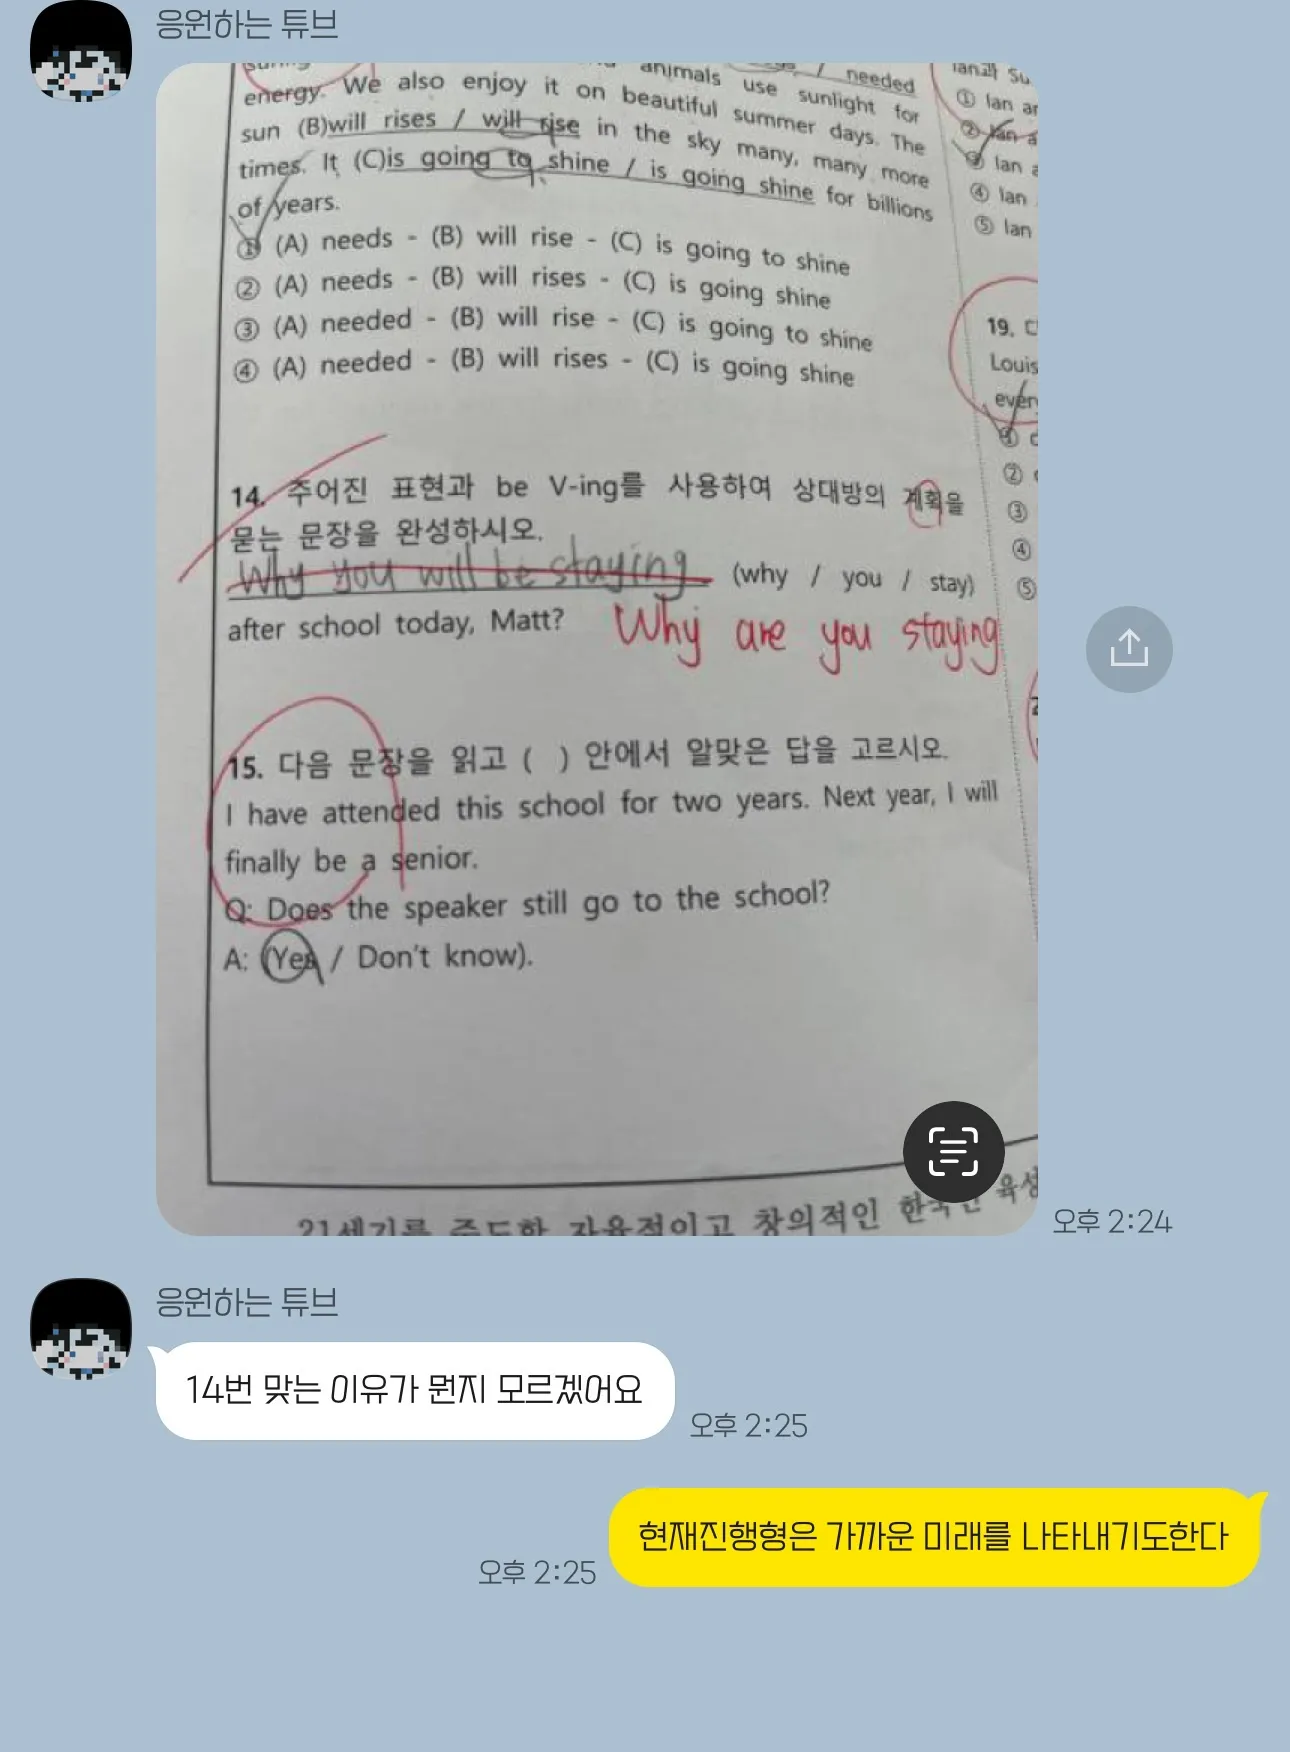 응원하는 튜브
animals use sunlight for
needed
energy. We also enjoy it on beautiful summer days. The
sun (B)will rises / will rise in the sky many, many more
times. It (C)is going to shine / is going shine for billions
of years.
① (A) needs - (B) will rise - (C) is going to shine
② (A) needs - (B) will rises - (C) is going shine
③ (A) needed - (B) will rise - (C) is going to shine
④ (A) needed - (B) will rises - (C) is going shine
14. 주어진 표현과 be V-ing를 사용하여 상대방의 계획을
묻는 문장을 완성하시오.
Why you will be staying (why / you / stay)
after school today, Matt? Why are you staying
15. 다음 문장을 읽고 ( ) 안에서 알맞은 답을 고르시오.
I have attended this school for two years. Next year, I will
finally be a senior.
Q: Does the speaker still go to the school?
A: (Yes / Don't know).
21세기를 주도할 자율적이고 창의적인 한국인 육성
① Ian
② Ian
③ Ian
④ Ian
⑤ Ian
19.
Louis
even
①
②
③
④
⑤
오후 2:24
응원하는 튜브
14번 맞는 이유가 뭔지 모르겠어요
오후 2:25
현재진행형은 가까운 미래를 나타내기도한다
오후 2:25